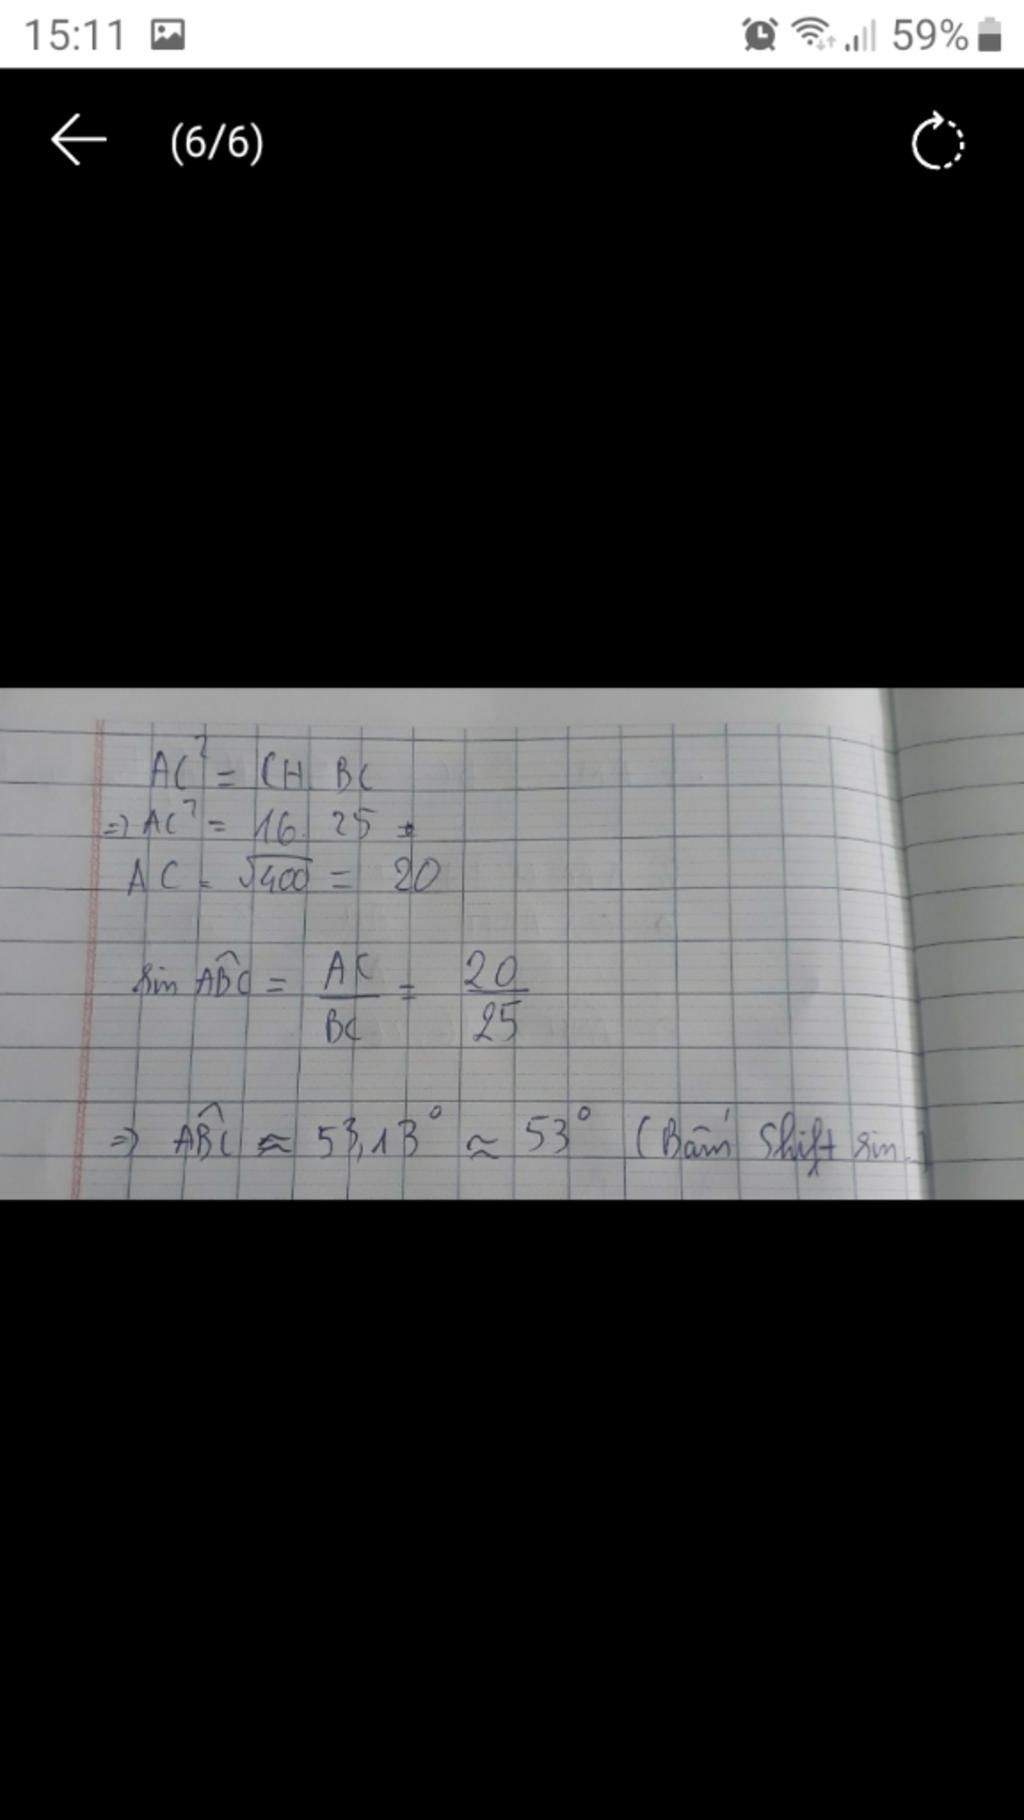 15:11 59%
(6/6)
AC² = CH. BC
=> AC² = 16. 25
AC = √400 = 20
sin ABC = AC/BC = 20/25
=> ABC ≈ 53,13° ≈ 53° (Bấm Shift sin.)